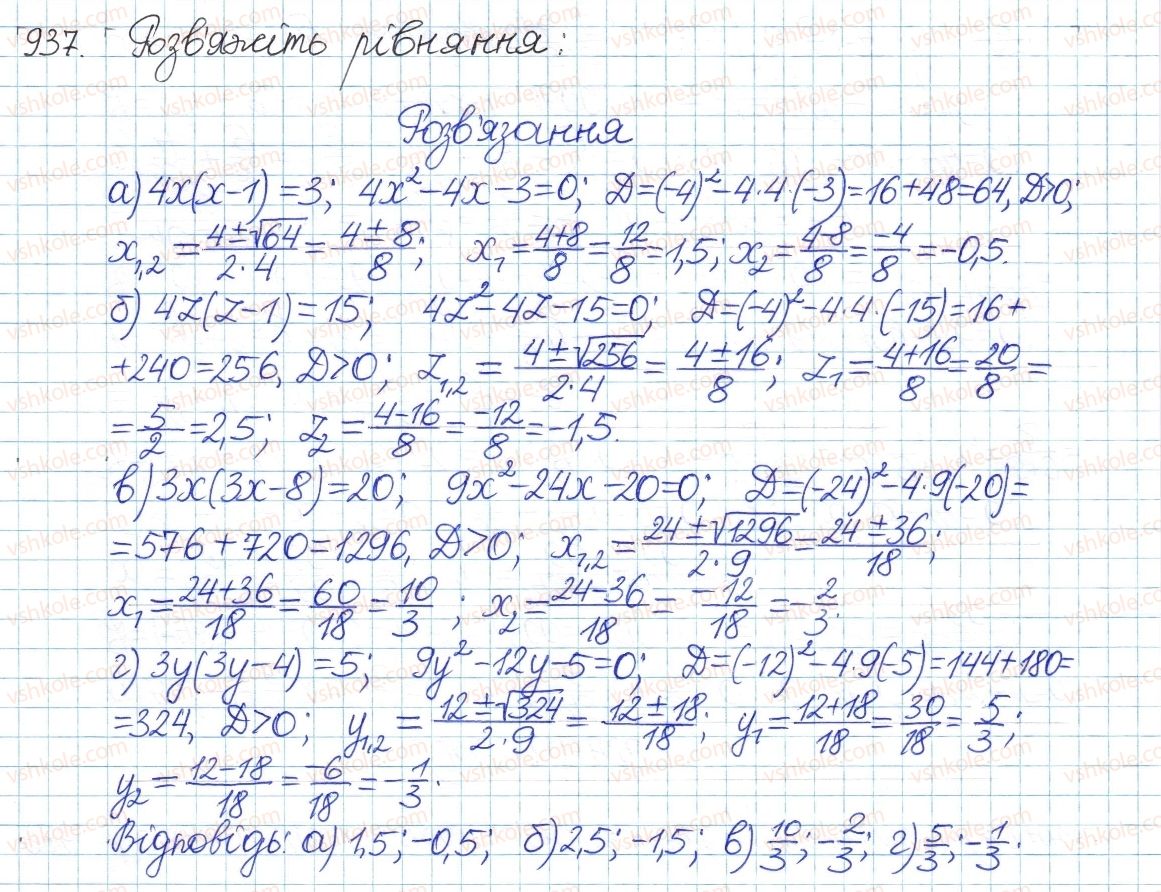 937. Розв'яжіть рівняння:
Розв'язання
а) 4x(x-1)=3; 4x²-4x-3=0; D=(-4)²-4·4·(-3)=16+48=64, D>0;
x₁,₂ = (4±√64)/(2·4) = (4±8)/8; x₁ = (4+8)/8 = 12/8 = 1,5; x₂ = (4-8)/8 = -4/8 = -0,5.
б) 4z(z-1)=15; 4z²-4z-15=0; D=(-4)²-4·4·(-15)=16+
+240=256, D>0; z₁,₂ = (4±√256)/(2·4) = (4±16)/8; z₁ = (4+16)/8 = 20/8 =
= 5/2 = 2,5; z₂ = (4-16)/8 = -12/8 = -1,5.
в) 3x(3x-8)=20; 9x²-24x-20=0; D=(-24)²-4·9(-20)=
=576+720=1296, D>0; x₁,₂ = (24±√1296)/(2·9) = (24±36)/18;
x₁ = (24+36)/18 = 60/18 = 10/3; x₂ = (24-36)/18 = -12/18 = -2/3.
г) 3y(3y-4)=5; 9y²-12y-5=0; D=(-12)²-4·9(-5)=144+180=
=324, D>0; y₁,₂ = (12±√324)/(2·9) = (12±18)/18; y₁ = (12+18)/18 = 30/18 = 5/3;
y₂ = (12-18)/18 = -6/18 = -1/3.
Відповідь: а) 1,5; -0,5; б) 2,5; -1,5; в) 10/3; -2/3; г) 5/3; -1/3.
vshkole.com